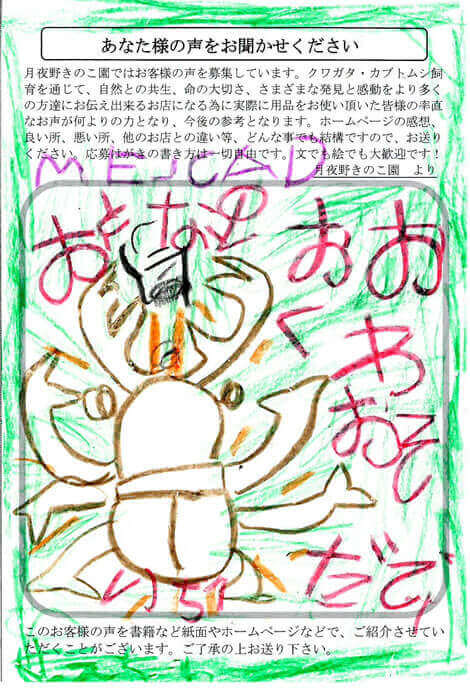 あなた様の声をお聞かせください
月夜野きのこ園ではお客様の声を募集しています。クワガタ・カブトムシ飼
育を通じて、自然との共生、命の大切さ、さまざまな発見と感動をより多く
の方達にお伝え出来るお店になる為に実際に用品をお使い頂いた皆様の率直
なお声が何よりの力となり、今後の参考となります。ホームページの感想、
良い所、悪い所、他のお店との違い等、どんな事でも結構ですので、お送り
ください。応募はがきの書き方は一切自由です。文でも絵でも大歓迎です！
月夜野きのこ園　より
おとなの
おお
く
わ
おそ
だて
このお客様の声を書籍など紙面やホームページなどで、ご紹介させてい
ただくことがございます。ご了承の上お送り下さい。